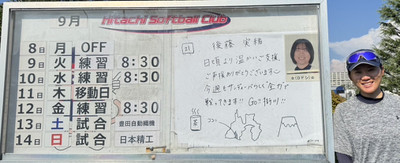 9月
Hitachi Softball Club
8日 月 OFF
9日 火 練習 8:30
10日 水 練習 8:30
11日 木 移動日
12日 金 練習 8:30
13日 土 試合 豊田自動織機
14日 日 試合 日本精工
31
後藤 実緒
日頃より温かいご支援、
ご声援ありがとうございます
今週も
全力で
戦ってきます!! Go!掛川!!
茶